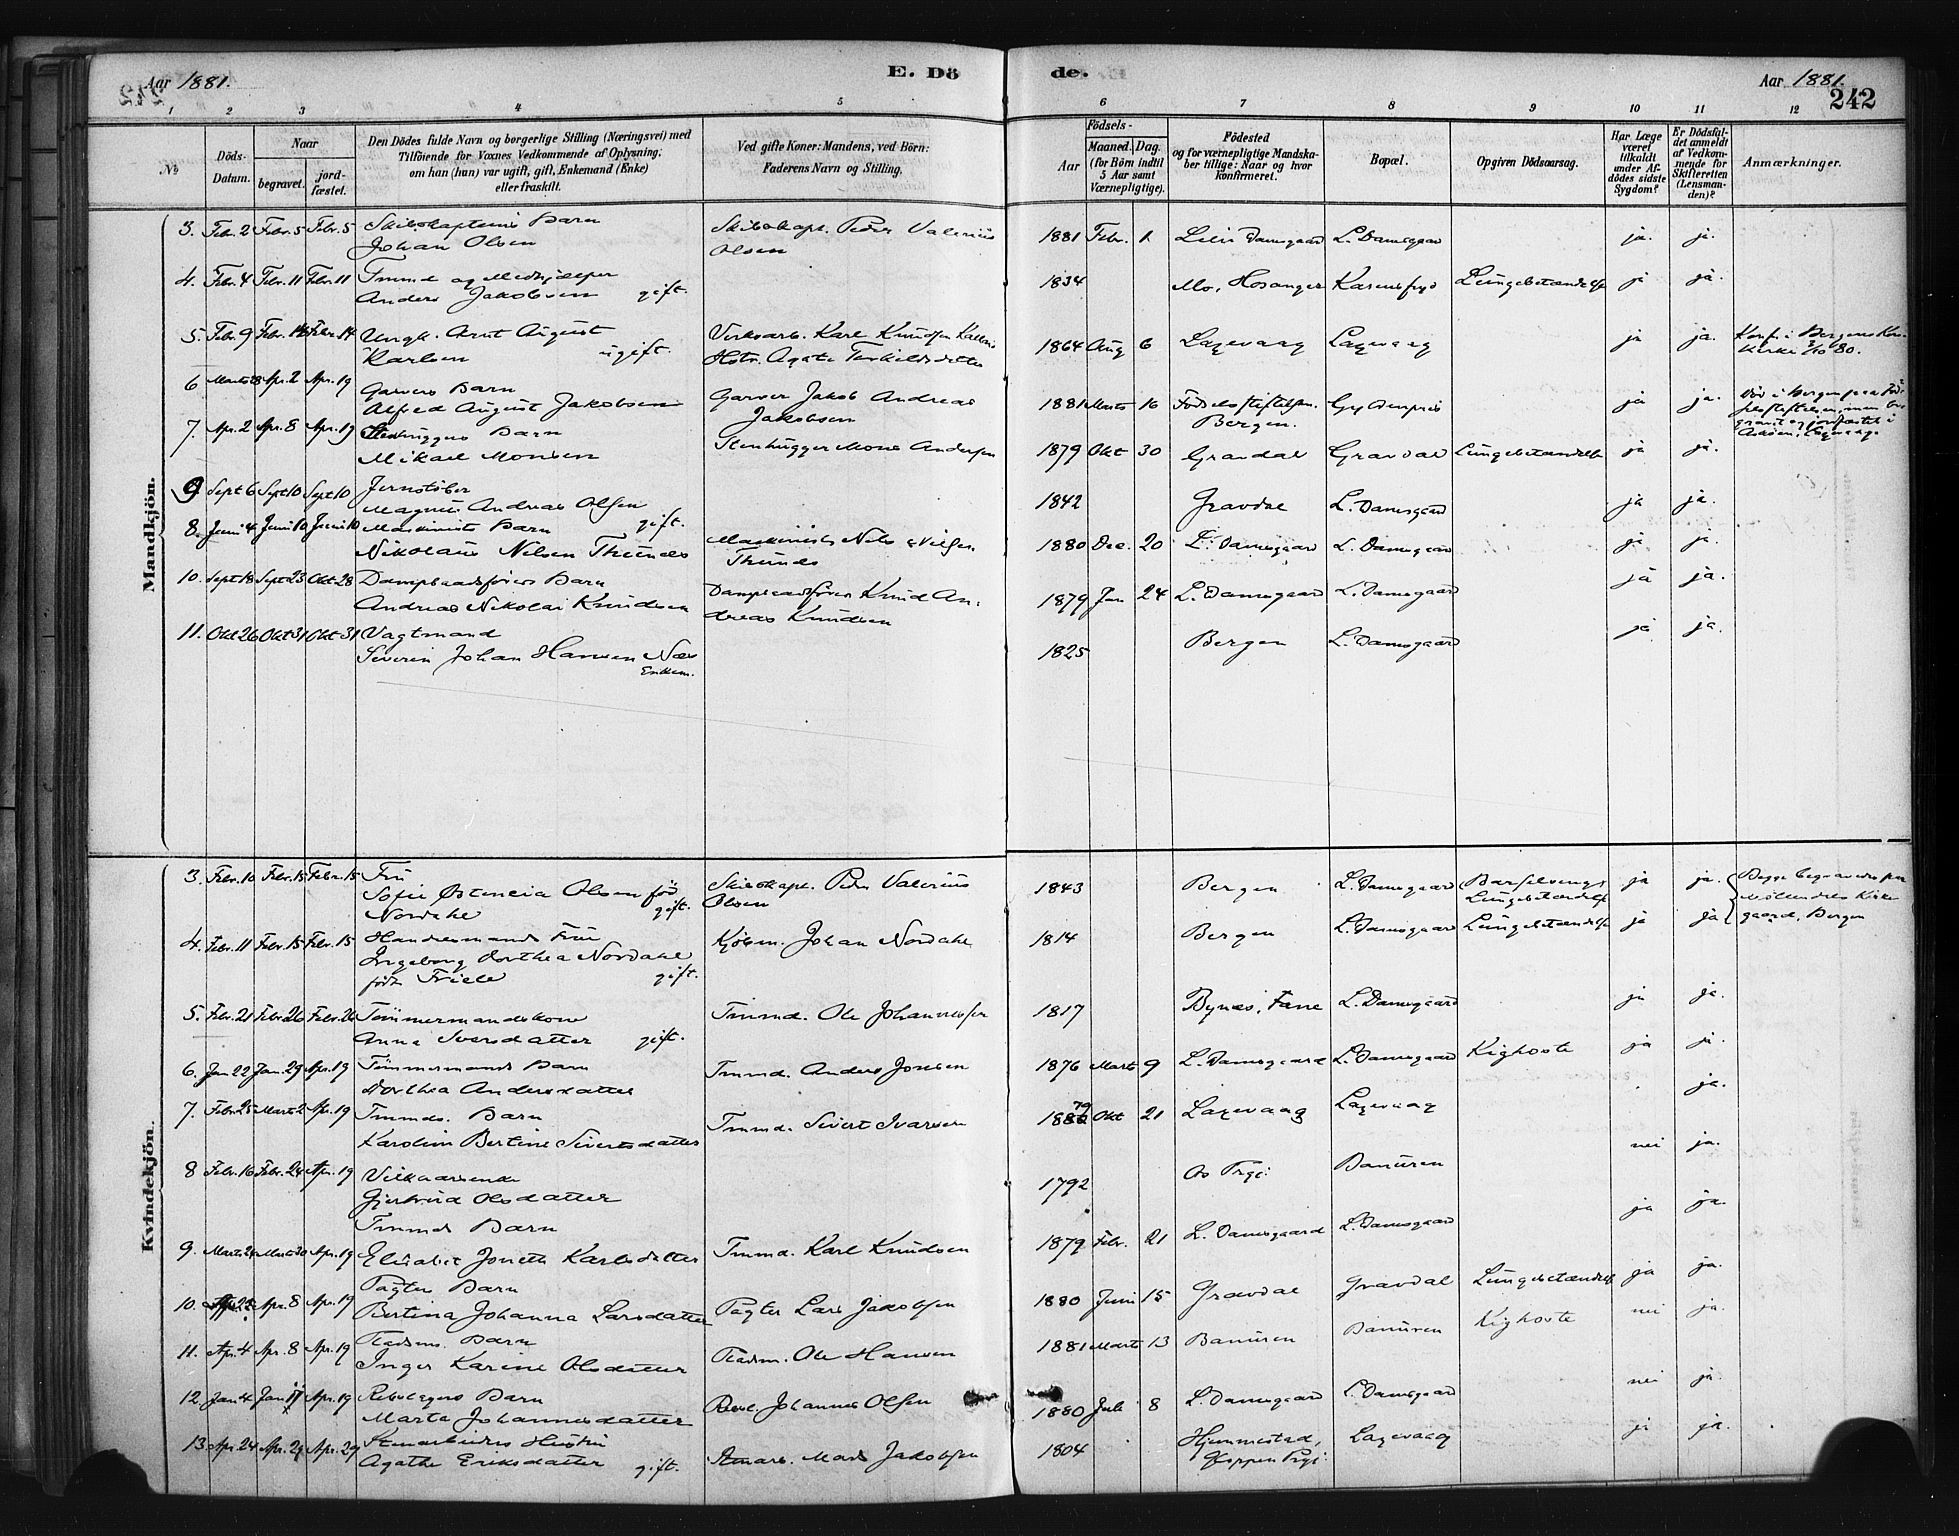 Aar 1881. E. Dö de. Aar 1881.
242
1 2 3 4 5 6 7 8 9 10 11 12
№
Döds-Datum.
Naar
begravet.
jord-fæstet.
Den Dödes fulde Navn og borgerlige Stilling (Næringsvei) med
Tilföiende for Voxnes Vedkommende af Oplysning,
om han (hun) var ugift, gift, Enkemand (Enke)
eller fraskilt.
Ved gifte Koner: Mandens, ved Börn:
Faderens Navn og Stilling.
Födsels-
Aar
Maaned. Dag.
(for Börn indtil
5 Aar samt
Værnepligtige).
Födested
og for værnepligtige Mandska-
ber tillige: Naar og hvor
konfirmeret.
Bopæl.
Opgiven Dödsaarsag.
Har Læge
været
tilkaldt
under Af-
dödes sidste
Sygdom?
Er Dödsfal-
det anmeldt
af Vedkom-
mende for
Skifteretten
(Lensman-
den)?
Anmærkninger.
Mandkjön.
3. Febr. 2 Febr. 5 Febr. 5 Skibskapteins Barn Skibskapt. Peder Valerius 1881 Febr. 1 Lille Damsgaard L. Damsgaard ja. ja.
Johan Olsen Olsen
4. Febr. 4 Febr. 11 Febr. 11 Tmmd og Medhjælper 1834 Mo, Hosanger Lungebetændelse ja ja.
Anders Jakobsen gift.
5. Febr. 9 Febr. 14 Febr. 14 Ungk. Arnt August Verksarb. Karl Knudsen 1864 Aug 6 Laxevaag Laxevaag ja ja. Konf. i Bergens Kors-
Karlsen ugift. Hstr. Agate Terkildsdatter kirke 3/10 80.
6 Marts 28 Apr. 2 Apr. 19 Garvers Barn Garver Jakob Andreas 1881 Marts 16 Födselsstiftelsen. ja ja. Död i Bergen paa Föd-
Alfred August Jakobsen Jakobsen Bergen. selsstiftelsen, men be-
7. Apr. 2 Apr. 8 Apr. 19 Stenhuggers Barn Stenhugger Mons Andersen 1879 Okt 30 Gravdal Gravdal Lungebetændelse ja ja.
Mikael Monsen
9 Sept 6 Sept 10 Sept 10 Jernstöber 1842 Gravdal L. Damsgaard ja ja.
Magnus Andreas Olsen gift.
8. Juni 4 Juni 10 Juni 10 Maskinists Barn Maskinist Nils Nilsen 1880 Dec. 20 L. Damsgaard L. Damsgaard ja ja.
Nikolaus Nilsen Thunes Thunes
10. Sept 18 Sept 23 Okt 28 Dampbaadsförers Barn Dampbaadsförer Knud An- 1879 Jan 24 L. Damsgaard L. Damsgaard ja ja.
Andreas Nikolai Knudsen dreas Knudsen
11. Okt 26 Okt 31 Okt 31 Vagtmand 1825 Bergen L. Damsgaard ja ja.
Severin Johan Hansen Næs
Enkem.
Kvindekjön.
3. Febr. 10 Febr. 15 Febr. 15 Fru Skibskapt. Peder Valerius 1843 Bergen L. Damsgaard Barselseng, ja ja. Begge begravede paa
Sofie Østensia Olsen föd Olsen Lungebetændelse Möllendals Kirke-
Nordahl gift. gaard, Bergen
4. Febr. 11 Febr. 15 Febr. 15 Handelsmands Fru Kjöbm. Johan Nordahl 1814 Bergen L. Damsgaard Lungebetændelse ja ja
Ingeborg Dorthea Nordahl
födt Friele gift.
5. Febr. 21 Febr. 26 Febr. 26 Tömmermandskone Tmmd. Ole Johannessen 1817 Bynæs, Fane L. Damsgaard ja ja.
Anna Iversdatter gift.
6. Jan 22 Jan. 29 Apr. 19 Tömmermands Barn Tmmd. Anders Jonsen 1876 Marts 9 L. Damsgaard L. Damsgaard Kighoste ja ja.
Dorthea Andersdatter
7. Febr. 25 Marts 2 Apr. 19 Tmmds. Barn Tmmd. Sivert Ivarsen 1879 Okt 21 Laxevaag Laxevaag ja.
Karoline Bertine Sivertsdatter
8 Febr. 16 Febr. 24 Apr. 19 Vilkaarsenke 1792 Os Prgj. Banuren nei ja.
Gjertrud Olsdatter
9. Marts 24 Marts 30 Apr. 19 Tmmds Barn Tmmd. Karl Knudsen 1879 Febr. 21 L. Damsgaard L. Damsgaard ja ja.
Elisabet Joneth Karlsdatter
10. Apr. 8 Apr. 19 Pagters Barn Pagter Lars Jakobsen 1880 Juni 15 Gravdal Gravdal Lungebetændelse ja ja.
Bertina Johanna Larsdatter
11. Apr. 4 Apr. 8 Apr. 19 Pladsm. Barn Pladsm. Ole Hansen 1881 Marts 13 Banuren Banuren Kighoste nei ja.
Inger Karine Olsdatter
12. Jan 4 Jan 17 Apr. 19 Rebslagers Barn Rebsl. Johannes Olsen 1880 Juli 8 L. Damsgaard L. Damsgaard nei ja.
Marta Johannesdatter
13. Apr. 24 Apr. 29 Apr. 29 Stenarbeiders Hustru Stenarb. Mads Jakobsen 1804 Hjemmestad, Laxevaag ja ja.
Agathe Eriksdatter gift. Gloppen Prgj.